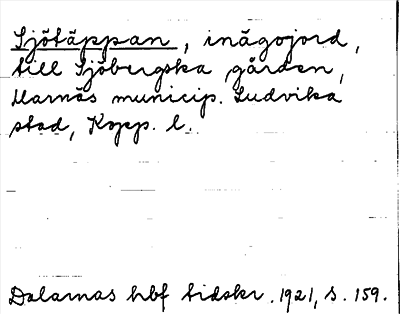 Sjötäppan, inägojord,
till Sjöbergska gården,
Marnäs municip. Ludvika
stad, Kopp. l.
Dalarnas hbf tidskr. 1921, s. 159.